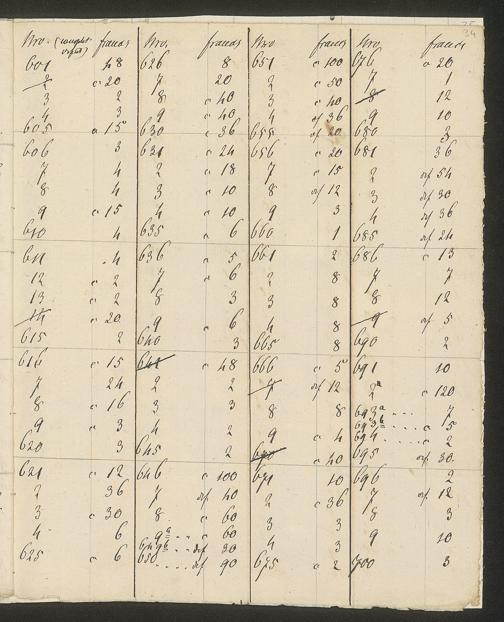 34
Nro. (caught francs
601 48
2 c 20
3 2
4 3
605 a 15
606 3
7 4
8 4
9 c 15
610 4
611 4
12 c 2
13 c 2
14 c 20
615 2
616 c 15
7 24
8 c 16
9 c 3
620 3
621 c 12
2 36
3 c 30
4 6
625 c 6
Nro. francs
626 8
7 20
8 c 40
9 c 40
630 c 36
631 c 24
2 c 18
3 c 10
4 c 10
635 c 6
636 c 5
7 c 6
8 3
9 c 6
640 3
641 c 48
2 2
3 3
4 2
645 2
646 c 100
7 def 40
8 c 60
9a c 60
649b def 30
650 def 90
Nro francs
651 c 100
2 c 50
3 c 40
4 of 36
655 of 20
656 c 20
7 c 15
8 of 12
9 3
660 1
661 2
2 8
3 8
4 8
665 8
666 c 5
7 of 12
8 8
9 c 4
670 c 40
671 10
2 c 36
3 3
4 3
675 c 2
Nro. francs
676 c 20
7 1
8 12
9 10
680 3
681 36
2 of 54
3 of 30
4 of 36
685 of 24
686 c 13
7 7
8 12
9 of 5
690 2
691 10
2a c 120
693a 7
693b c 5
694 c 2
695 of 30
696 2
7 of 12
8 3
9 10
700 3